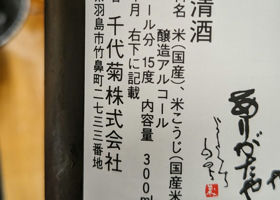 ありがたや
清酒
名 米(国産)、米こうじ(国産米
醸造アルコール
ール分 15度 内容量 300ml
月 右下に記載
千代菊株式会社
羽島市竹鼻町二七三三番地